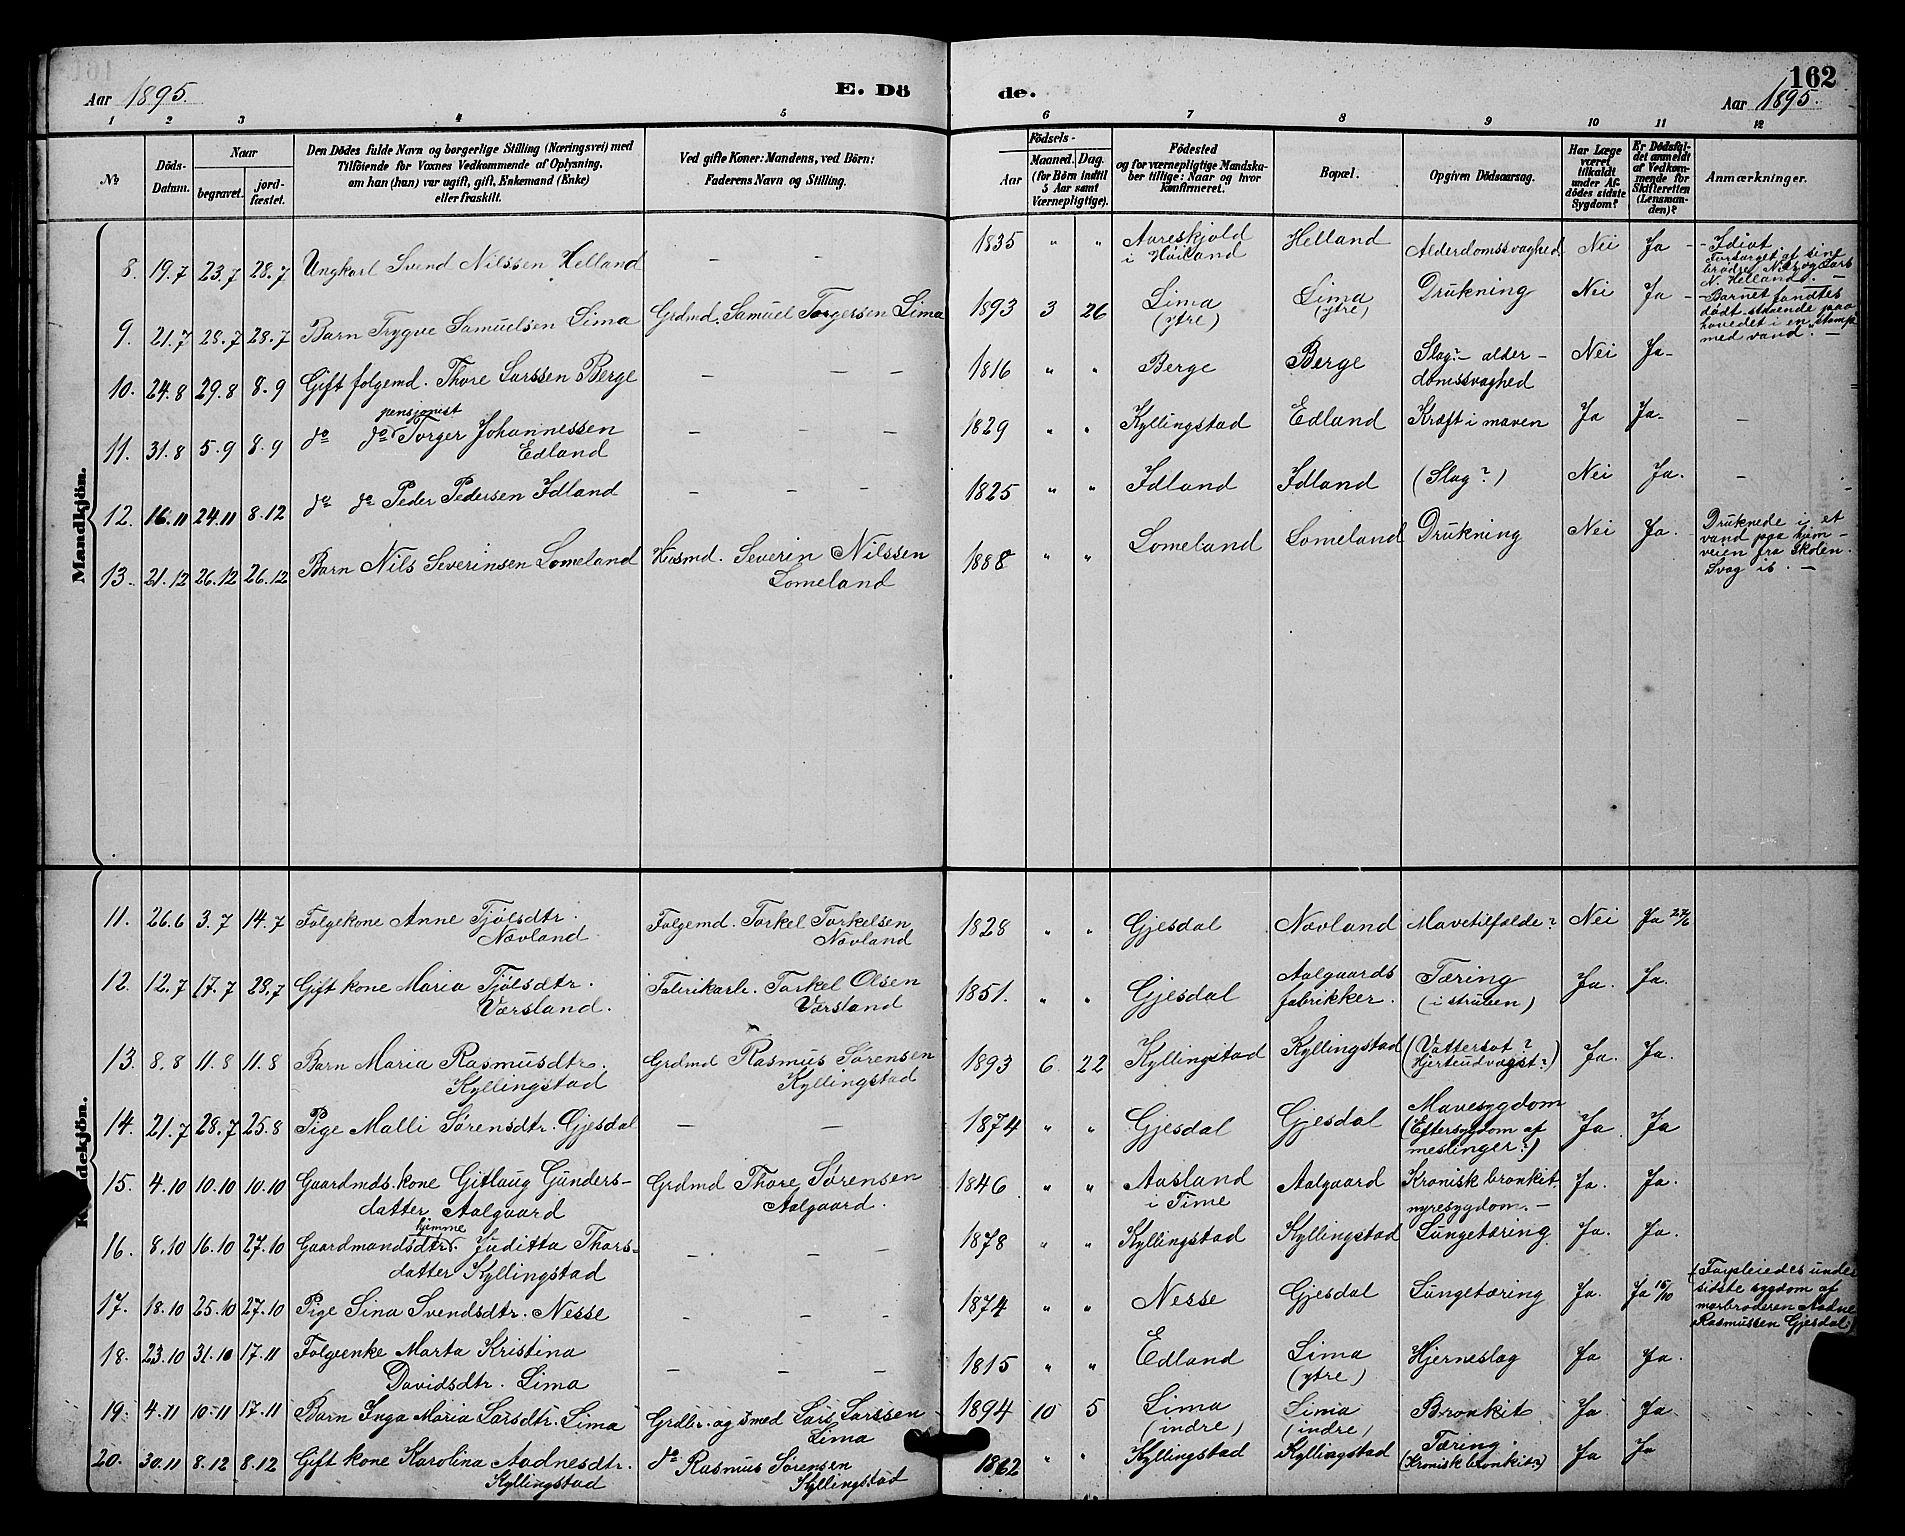 Aar 1895.
E. Dö
de.
162
Aar 1895.
1 2 3 4 5 6 7 8 9 10 11 12
№
Döds-
Datum.
Naar
begravet.
jord-
fæstet.
Den Dödes fulde Navn og borgerlige Stilling (Næringsvei) med
Tilföiende for Voxnes Vedkommende af Oplysning,
om han (hun) var ugift, gift, Enkemand (Enke)
eller fraskilt.
Ved gifte Koner: Mandens, ved Börn:
Faderens Navn og Stilling.
Födsels-
Aar
Maaned. Dag.
(for Börn indtil
5 Aar samt
Værnepligtige).
Födested
og for værnepligtige Mandska-
ber tillige: Naar og hvor
konfirmeret.
Bopæl.
Opgiven Dödsaarsag.
Har Læge
været
tilkaldt
under Af-
dödes sidste
Sygdom?
Er Dödsfal-
det anmeldt
af Vedkom-
mende for
Skifteretten
(Lensman-
den)?
Anmærkninger.
Mandkjön.
8. 19.7 23.7 28.7 Ungkarl Svend Nilssen Helland — — 1835 " " Aareskjold
i Høiland Helland Alderdomssvaghed. Nei Ja - - Idiot
Forsørget af sine
brødre Nils og Lars
N. Helland. —
9. 21.7 28.7 28.7 Barn Trygve Samuelsen Lima Grdmd. Samuel Torgersen Lima 1893 3 26 Lima
(ytre) Lima
(ytre) Drukning Nei Ja - - Barnet fandtes
dødt staaende paa
hovedet i en stamp
med vand. —
10. 24.8 29.8 8.9 Gift folgemd. Thore Larssen Berge — — — 1816 " " Berge Berge Slag? - alder-
domssvaghed Nei Ja -
11. 31.8 5.9 8.9 do do pensjonist
Torger Johannessen
Edland — — — 1829 " " Kyllingstad Edland Kræft i maven Ja Ja - —
12. 16.11 24.11 8.12 do do Peder Pedersen Idland — — — 1825 " " Idland Idland (Slag?) Nei Ja. —
13. 21.12 26.12 26.12 Barn Nils Severinsen Lomeland Husmd. Severin Nilssen
Lomeland 1888 " " Lomeland Lomeland Drukning Nei Ja. Druknede i et
vand paa hjem-
veien fra skolen.
Svag is. —
Kvindekjön.
11. 26.6 3.7 14.7 Folgekone Anne Tjølsdtr.
Nævland Folgemd. Torkel Torkelsen
Nævland 1828 " " Gjesdal Nævland Mavetilfælde? Nei Ja 27/6
12. 12.7 17.7 28.7 Gift kone Maria Tjølsdtr.
Værsland. Fabrikarb. Torkel Olsen
Værsland 1851. " " Gjesdal Aalgaards
fabrikker. Tæring
(i struben) Ja. Ja.
13. 8.8 11.8 11.8 Barn Maria Rasmusdtr.
Kyllingstad Grdmd Rasmus Sørensen
Kyllingstad 1893 6 22 Kyllingstad Kyllingstad (Vattersot?
Hjerteudvogst?) Ja. Ja.
14. 21.7 28.7 25.8 Pige Malli Sørensdtr. Gjesdal — — 1874 " " Gjesdal Gjesdal Mavesygdom
(Eftersygdom af
meslinger?) Ja. Ja
15. 4.10 10.10 10.10 Gaardmds. kone Gitlaug Gunders-
datter Aalgaard Grdmd Thore Sørensen
Aalgaard. 1846 " " Aasland
i Time Aalgaard Kronisk bronkit
nyresygdom. — Ja. Ja.
16. 8.10 16.10 27.10 Gaardmandsdtr. hjemme
Juditta Thors-
datter Kyllingstad — — — 1878 " " Kyllingstad Kyllingstad Lungetæring. Ja. Ja.
17. 18.10 25.10 27.10 Pige Sina Svendsdtr. Nesse — — — 1874 " " Nesse Gjesdal Lungetæring Ja. Ja 15/10 (Forpleiedes under
sidste sygdom af
morbroderen Aadne
Rasmussen Gjesdal)
18. 23.10 31.10 17.11 Folgeenke Marta Kristina
Davidsdtr. Lima — — — 1815 " " Edland Lima
(ytre) Hjerneslag Ja Ja.
19. 4.11 10.11 17.11 Barn Inga Maria Larsdtr. Lima Grdbr. og smed Lars Larssen
Lima 1894 10 5 Lima
(indre) Lima
(indre) Bronkit Ja. Ja.
20. 30.11 8.12 8.12 Gift kone Karolina Aadnesdtr.
Kyllingstad do Rasmus Sørensen
Kyllingstad 1862 " " Kyllingstad Kyllingstad Tæring.
(Kronisk bronkit?) Ja Ja